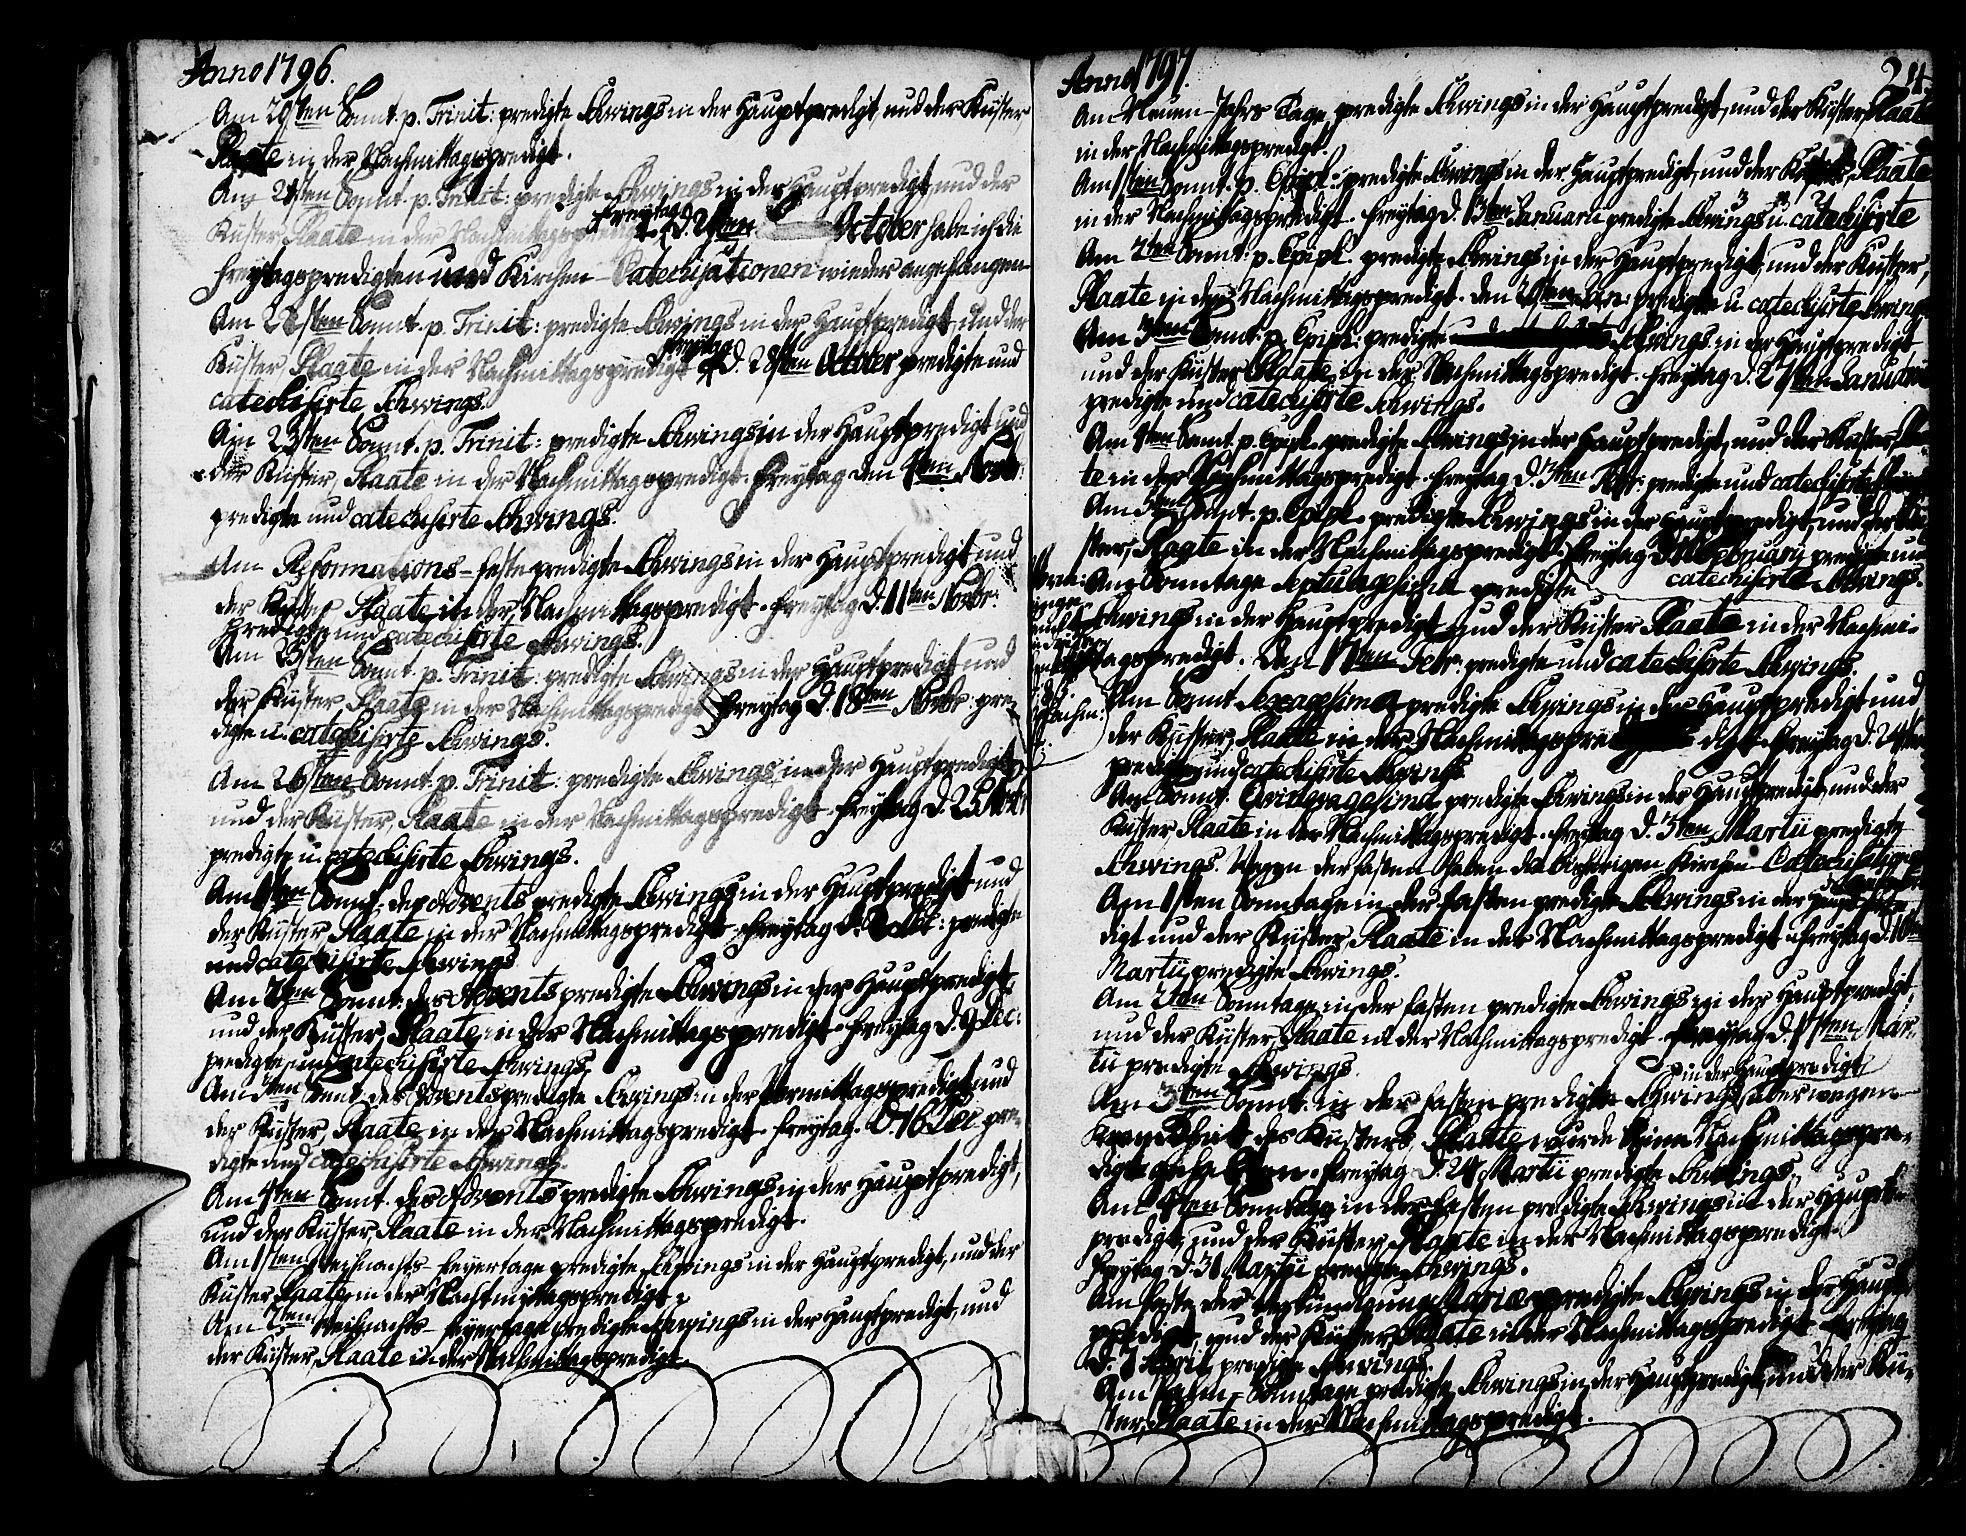 Anno 1796.
Am 20sten Sonnt. p. Trinit: predigte Schwings in der Hauptpredigt, und der Küster,
Staate in der Nachmittagspredigt.
Am 21sten Sonnt. p. Trinit: predigte Schwings in der Hauptpredigt, und der
Küster, Staate in der Nachmittagspredigt. Freytag d. 21sten October habe ich die
Freytagspredigten und Kirchen-Catechisationen wieder angefangen
Am 22sten Sonnt. p. Trinit: predigte Schwings in der Hauptpredigt, und der
Küster Staate in der Nachmittagspredigt Freytag d. 28sten October predigte und
catechisirte Schwings.
Am 23sten Sonnt. p. Trinit: predigte Schwings in der Hauptpredigt und
der Küster, Staate in der Nachmittagspredigt. Freytag den 4ten Novbr:
predigte und catechisirte Schwings.
Am Reformations-feste predigte Schwings in der Hauptpredigt und
der Küster Staate, in der Nachmittagspredigt. Freytag d. 11ten Novbr:
predigte und catechisirte Schwings.
Am 25sten Sonnt. p. Trinit: predigte Schwings in der Hauptpredigt und
der Küster Staate in der Nachmittagspredigt, Freytag d. 18ten Novbr: pre-
digte u. catechisirte Schwings.
Am 26sten Sonnt. p. Trinit: predigte Schwings in der Hauptpredigt
und der Küster, Staate in der Nachmittagspredigt. Freytag d. 25 Nov:
predigte u. catechisirte Schwings.
Am 1sten Sonnt. des Advents predigte Schwings in der Hauptpredigt und
der Küster, Staate in der Nachmittagspredigt. Freytag d. 2 predigte
und catechisirte Schwings
Am 2ten Sonnt. des Advents predigte Schwings in der Hauptpredigt
und der Küster, Staate, in der Nachmittagspredigt. Freytag d. 9 Dec:
predigte, und catechisirte Schwings.
Am 3ten Sonnt. des Advents predigte Schwings in der Vormittagspredigt und
der Küster, Staate in der Nachmittagspredigt. Freytag. d. 16 Dec pre-
digte und catechisirte Schwings.
Am 4ten Sonnt. des Advents predigte Schwings in der Hauptpredigt,
und der Küster, Staate in der Nachmittagspredigt.
Am 1sten Weihnachts-feyertage predigte Schwings in der Hauptpredigt, und der
Küster, Staate in der Nachmittagspredigt.
Am 2ten Weihnachts-feyertage predigte Schwings in der Hauptpredigt, und
der Küster, Staate in der Nachmittagspredigt.
Anno 1797.
Am Neuen Jahrs Tage predigte Schwings in der Hauptpredigt, und der Küster, Staate
in der Nachmittagspredigt.
Am 1sten Sonnt. p. Epiph: predigte Schwings in der Hauptpredigt, und der Küster, Staate
in der Nachmittagspredigt. Freytag d. 13ten Januarii predigte Schwings u. catechisirte
Am 2ten Sonnt. p. Epiph: predigte Schwings in der Hauptpredigt, und der Küster,
Staate in der Nachmittagspredigt. den 20sten Jan: predigte u catechisirte Schwings
Am 3ten Sonnt. p. Epiph: predigte Schwings in der Hauptpredigt
und der Küster Staate, in der Nachmittagspredigt. Freytag d. 27sten Januarii
predigte und catechisirte Schwings.
Am 4ten Sonnt. p. Epiph. predigte Schwings in der Hauptpredigt, und der Küster Staa-
te in der Nachmittagspredigt. Freytag d. 3ten Febr: predigte und catechisirte Schwings
Am 5ten Sonnt. p. Epiph. predigte Schwings in der Hauptpredigt, und der Kü-
ster, Staate in der Nachmittagspredigt. Freytag Februarii predigte und
catechisirte Schwings.
Am Sonntage Septuagesima predigte
Schwings in der Hauptpredigt und der Küster Staate in der Nachmi-
ttagspredigt. Den 17ten Febr: predigte und catechisirte Schwings.
Am Sonnt. Sexagesima predigte Schwings in der Hauptpredigt und
der Küster, Staate in der Nachmittagspre digt. Freytag d. 24sten
predigte und catechisirte Schwings
Am Sonnt. Quinquagesima predigte Schwings in der Hauptpredigt, und der
Küster Staate in der Nachmittagspredigt. Freytag d. 3ten Martii predigte
Schwings. Wegen der Fasten haben die bisherigen Kirchen Catechisationen
Am 1sten Sonntage in der Fasten predigte Schwings in der Hauptpre-
digt und der Küster Staate in der Nachmittagspredigt. Freytag d. 10ten
Martii predigte Schwings.
Am 2ten Sonntage in der Fasten predigte Schwings in der Hauptpredigt,
und der Küster, Staate in der Nachmittagspredigt. Freytag d. 17ten Mar-
tii predigte Schwings.
Am 3ten Sonnt. in der Fasten predigte Schwings in der Hauptpredigt, aber wegen
Krankheit des Küsters, Staate wurde keine Nachmittagspre-
digt gehalten. Freytag d. 24 Martii predigte Schwings.
Am 4ten Sonntage in der Fasten predigte Schwings in der Haupt-
predigt, und der Küster Staate in der Nachmittagspredigt.
Freytag d. 31 Martii predigte Schwings.
Am Feste der Verkündigung Mariae predigte Schwings in der Haupt-
predigt, und der Küster, Staate in der Nachmittagspredigt. Freytag
d. 7 April predigte Schwings.
Am Palm-Sonntage predigte Schwings in der Hauptpredigt, und der Kü-
ster, Staate in der Nachmittagspredigt.